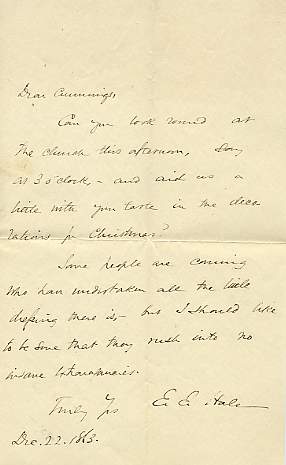 Dear Cummings,
Can you look round at
the church this afternoon, say
at 3 o'clock, – and aid us a
little with your taste in the deco
rations for Christmas?
Some people are coming
who have undertaken all the little
dressing there is – but I should like
to be sure that they rush into no
insane extravagancies.
Truly Yrs E. E. Hale
Dec. 22. 1863.